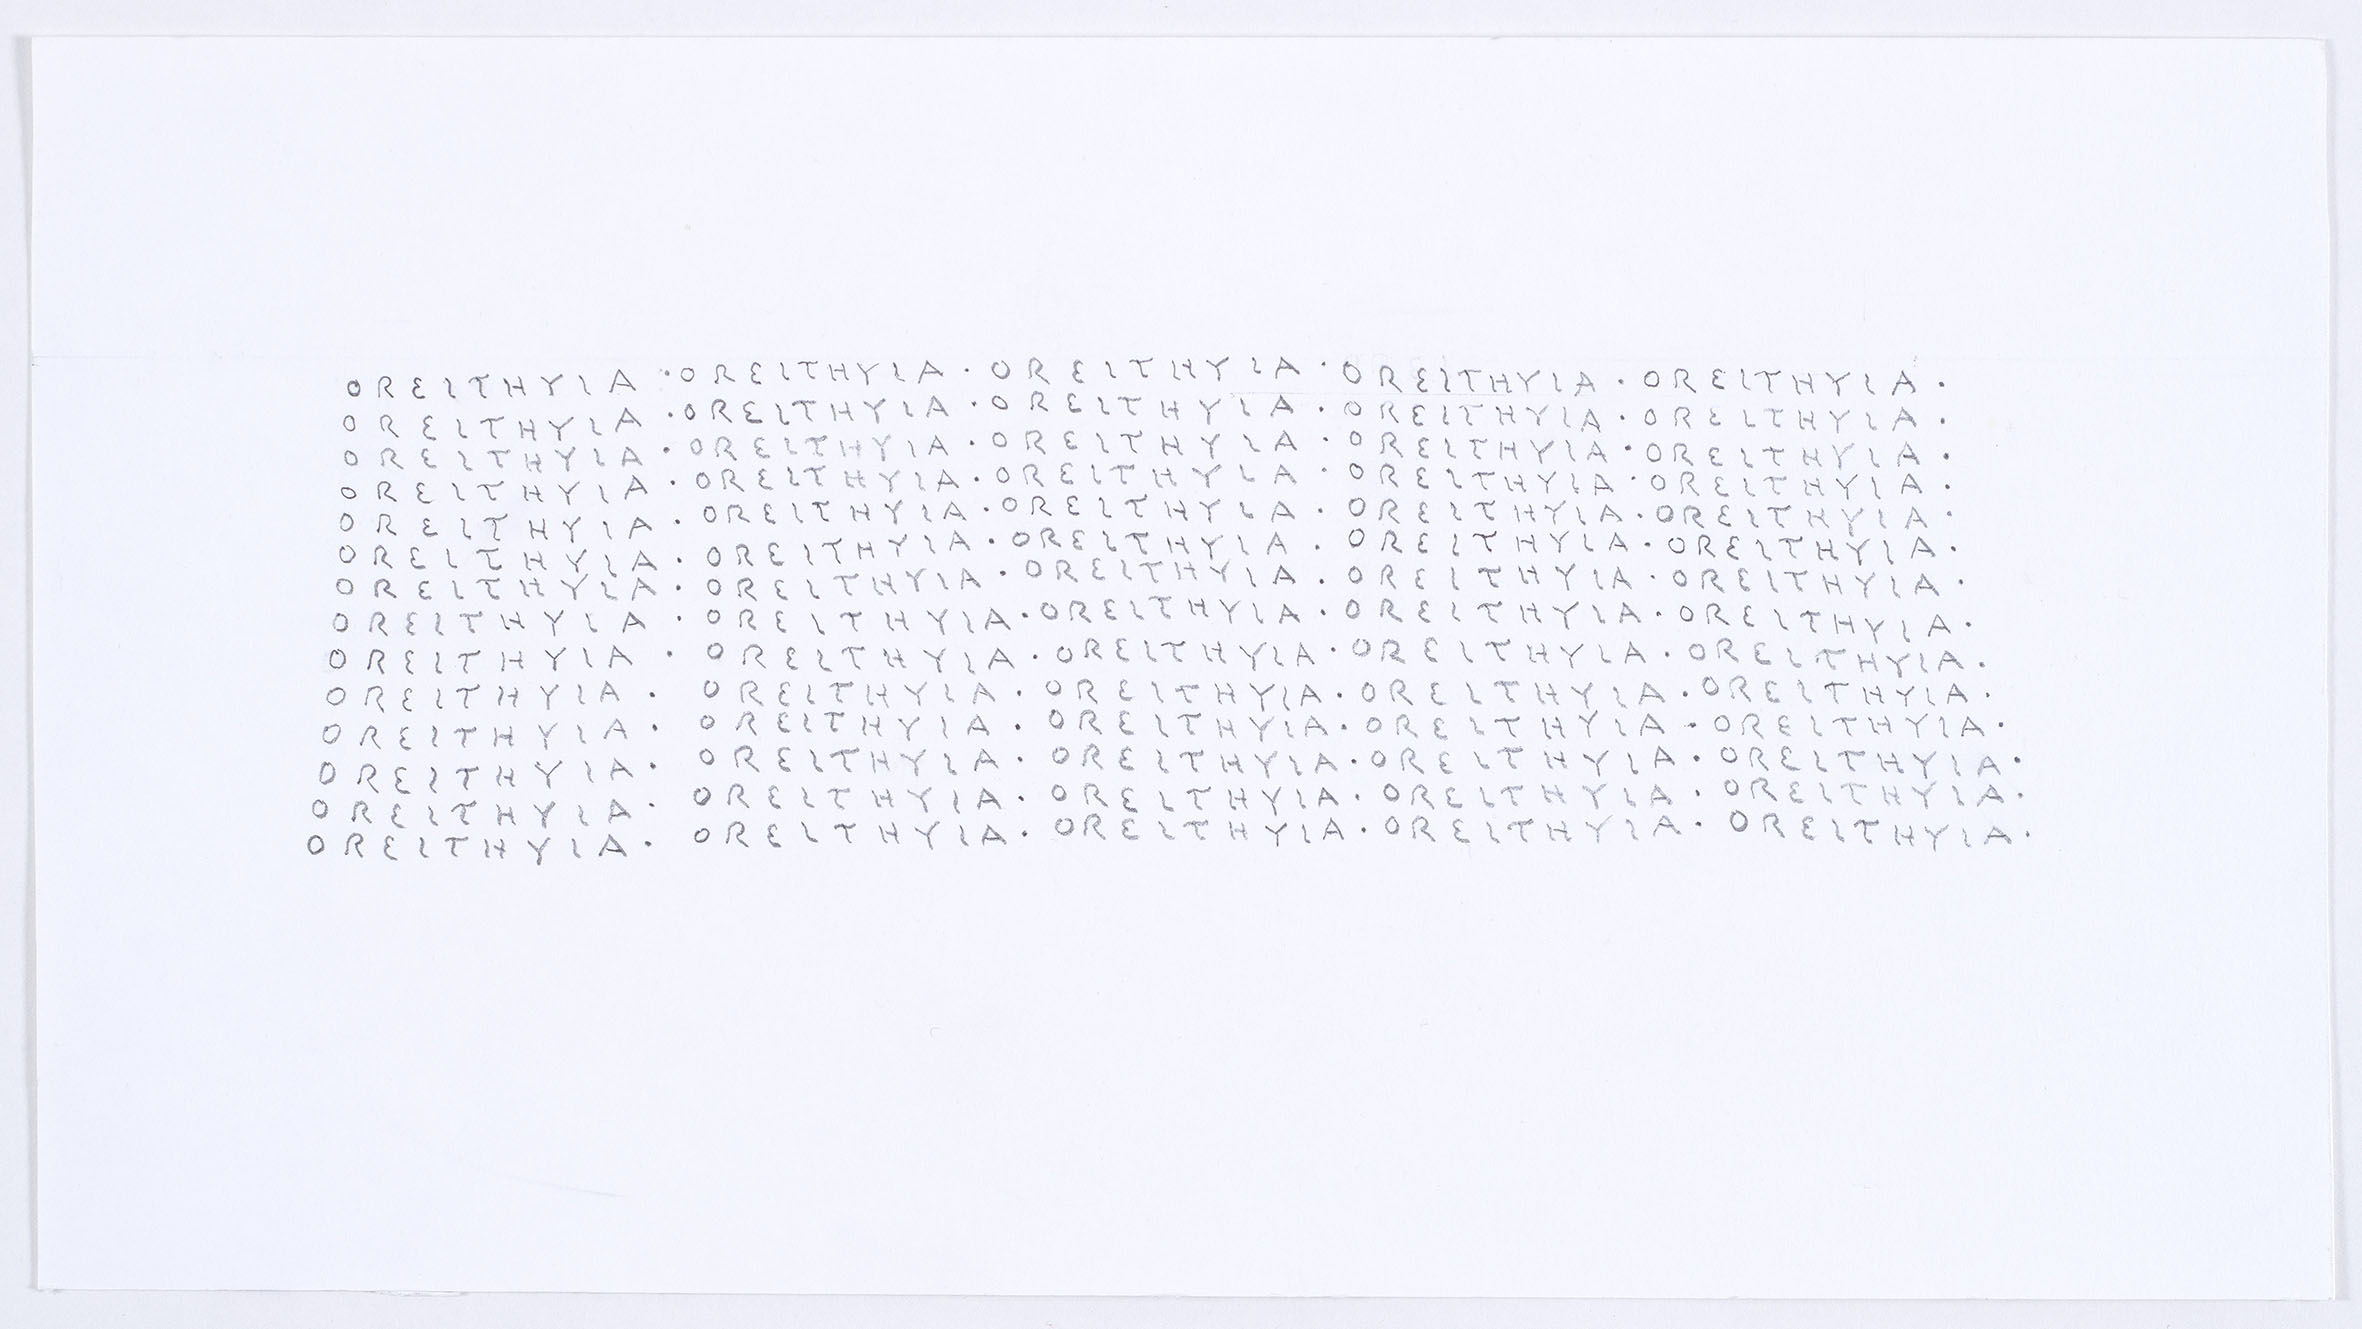 OREITHYIA · OREITHYIA · OREITHYIA · OREITHYIA · OREITHYIA ·
OREITHYIA · OREITHYIA · OREITHYIA · OREITHYIA · OREITHYIA ·
OREITHYIA · OREITHYIA · OREITHYIA · OREITHYIA · OREITHYIA ·
OREITHYIA · OREITHYIA · OREITHYIA · OREITHYIA · OREITHYIA ·
OREITHYIA · OREITHYIA · OREITHYIA · OREITHYIA · OREITHYIA ·
OREITHYIA · OREITHYIA · OREITHYIA · OREITHYIA · OREITHYIA ·
OREITHYIA · OREITHYIA · OREITHYIA · OREITHYIA · OREITHYIA ·
OREITHYIA · OREITHYIA · OREITHYIA · OREITHYIA · OREITHYIA ·
OREITHYIA · OREITHYIA · OREITHYIA · OREITHYIA · OREITHYIA ·
OREITHYIA · OREITHYIA · OREITHYIA · OREITHYIA · OREITHYIA ·
OREITHYIA · OREITHYIA · OREITHYIA · OREITHYIA · OREITHYIA ·
OREITHYIA · OREITHYIA · OREITHYIA · OREITHYIA · OREITHYIA ·
OREITHYIA · OREITHYIA · OREITHYIA · OREITHYIA · OREITHYIA ·
OREITHYIA · OREITHYIA · OREITHYIA · OREITHYIA · OREITHYIA ·